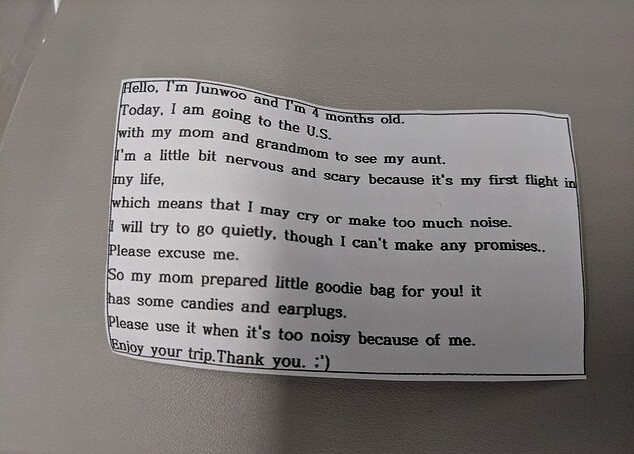 Hello, I'm Junwoo and I'm 4 months old.
Today, I am going to the U.S.
with my mom and grandmom to see my aunt.
I'm a little bit nervous and scary because it's my first flight in
my life,
which means that I may cry or make too much noise.
I will try to go quietly, though I can't make any promises..
Please excuse me.
So my mom prepared little goodie bag for you! it
has some candies and earplugs.
Please use it when it's too noisy because of me.
Enjoy your trip.Thank you. ;')